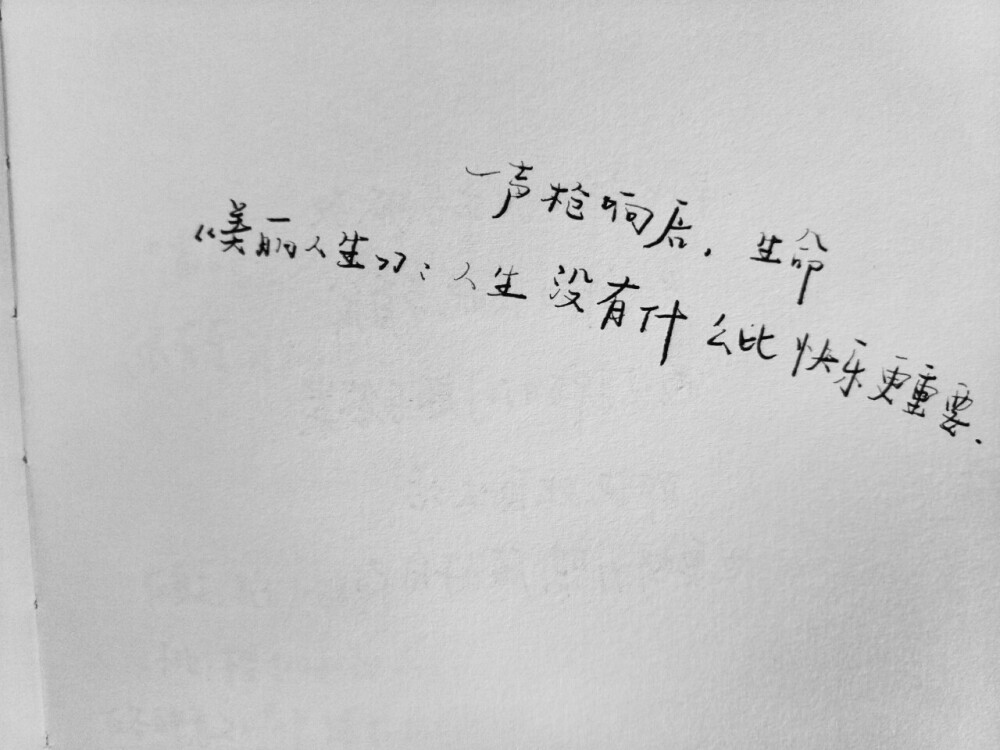 一声枪响后，生命
《美丽人生》：人生没有什么比快乐更重要.